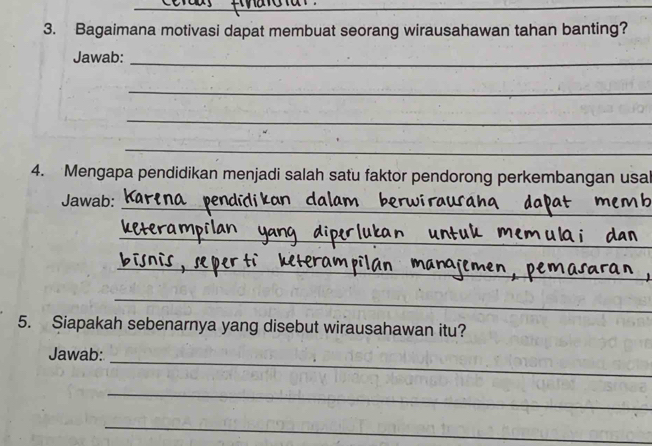 cerdas finansial.
3. Bagaimana motivasi dapat membuat seorang wirausahawan tahan banting?
Jawab:
4. Mengapa pendidikan menjadi salah satu faktor pendorong perkembangan usa
Jawab: Karena pendidikan dalam berwirausaha dapat memb
keterampilan yang diperlukan untuk memulai dan
bisnis, seperti keterampilan manajemen, pemasaran,
5. Siapakah sebenarnya yang disebut wirausahawan itu?
Jawab: